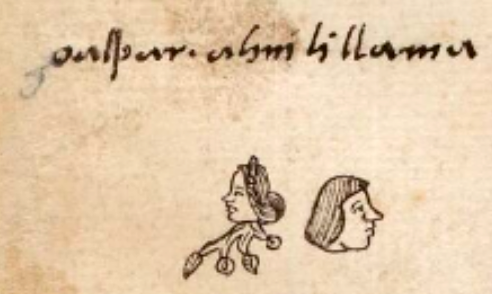 gaspar. ahui lillama